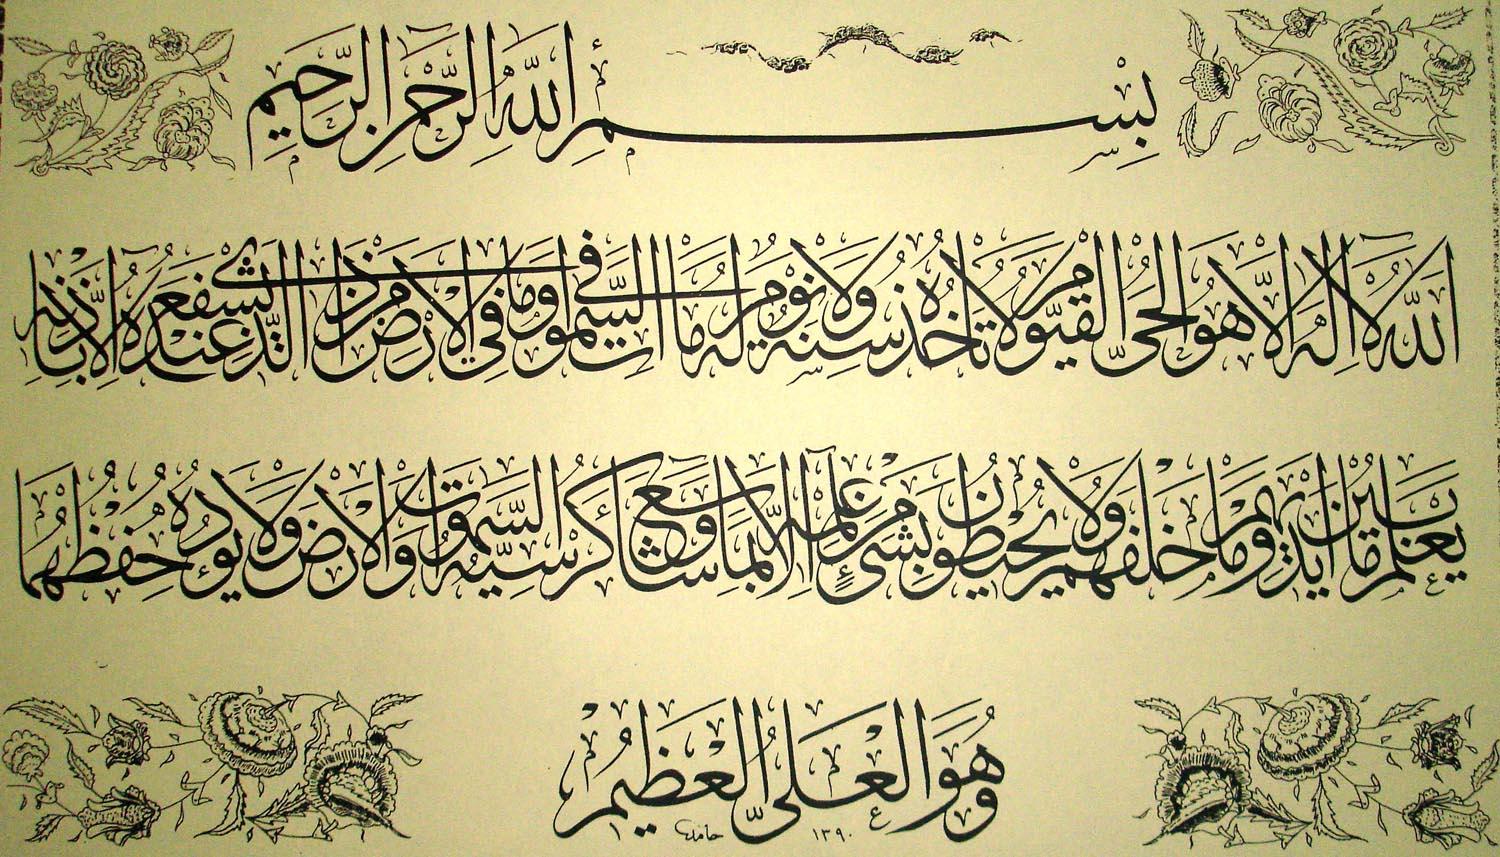 بِسْمِ اللهِ الرَّحْمٰنِ الرَّحِيمِ
اَللهُ لَا اِلٰهَ اِلَّا هُوَ الْحَىُّ الْقَيُّومُ لَا تَاْخُذُهُ سِنَةٌ وَلَا نَوْمٌ لَهُ مَا فِى السَّمٰوَاتِ وَمَا فِى الْاَرْضِ مَنْ ذَا الَّذِى يَشْفَعُ عِنْدَهُ اِلَّا بِاِذْنِهِ
يَعْلَمُ مَا بَيْنَ اَيْدِيهِمْ وَمَا خَلْفَهُمْ وَلَا يُحِيطُونَ بِشَىْءٍ مِنْ عِلْمِهِ اِلَّا بِمَا شَاءَ وَسِعَ كُرْسِيُّهُ السَّمٰوَاتِ وَالْاَرْضَ وَلَا يَؤُدُهُ حِفْظُهُمَا
وَهُوَ الْعَلِىُّ الْعَظِيمُ
حامد ١٣٩٠